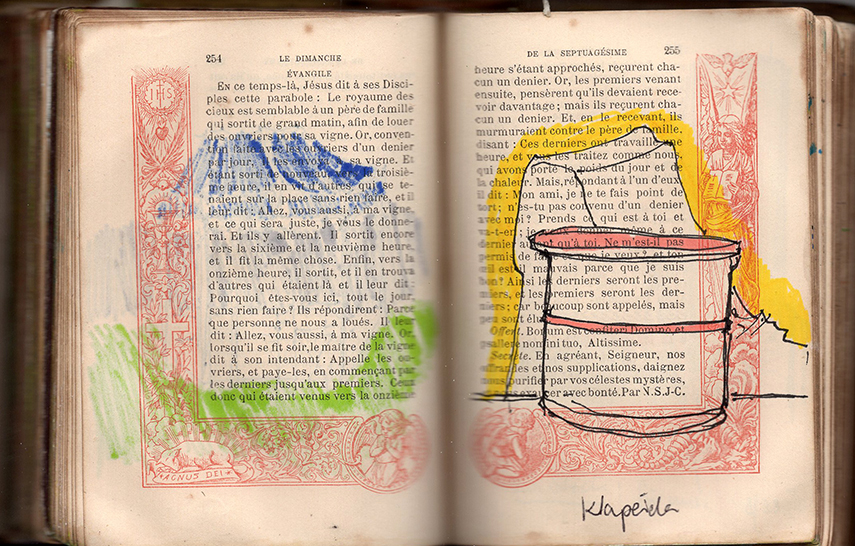 254
LE DIMANCHE
ÉVANGILE
En ce temps-là, Jésus dit à ses Disci-
ples cette parabole : Le royaume des
cieux est semblable à un père de famille
qui sortit de grand matin, afin de louer
des ouvriers pour sa vigne. Or, conven-
tion faite avec les ouvriers d'un denier
par jour, il les envoya à sa vigne. Et
étant sorti de nouveau vers la troisiè-
me heure, il en vit d'autres, qui se te-
naient sur la place sans rien faire, et il
leur dit : Allez, vous aussi, à ma vigne,
et ce qui sera juste, je vous le donne-
rai. Et ils y allèrent. Il sortit encore
vers la sixième et la neuvième heure,
et il fit la même chose. Enfin, vers la
onzième heure, il sortit, et il en trouva
d'autres qui étaient là et il leur dit :
Pourquoi êtes-vous ici, tout le jour,
sans rien faire? Ils répondirent : Parce
que personne ne nous a loués. Il leur
dit : Allez, vous aussi, à ma vigne. Or,
lorsqu'il se fit soir, le maître de la vigne
dit à son intendant : Appelle les ou-
vriers, et paye-les, en commençant par
les derniers jusqu'aux premiers. Ceux
donc qui étaient venus vers la onzième
IHS
AGNUS DEI
DE LA SEPTUAGÉSIME
255
heure s'étant approchés, reçurent cha-
cun un denier. Or, les premiers venant
ensuite, pensèrent qu'ils devaient rece-
voir davantage; mais ils reçurent cha-
cun un denier. Et, en le recevant, ils
murmuraient contre le père de famille,
disant : Ces derniers ont travaillé une
heure, et vous les traitez comme nous,
qui avons porté le poids du jour et de
la chaleur. Mais, répondant à l'un d'eux
il dit : Mon ami, je ne te fais point de
tort; n'es-tu pas convenu d'un denier
avec moi? Prends ce qui est à toi et
va-t-en; je veux donner à ce
dernier autant qu'à toi. Ne m'est-il pas
permis de faire ce que je veux? et ton
œil est-il mauvais parce que je suis
bon? Ainsi les derniers seront les pre-
miers, et les premiers seront les der-
niers; car beaucoup sont appelés, mais
peu sont élus.
Offert. Bonum est confiteri Domino et
psallere nomini tuo, Altissime.
Secrète. En agréant, Seigneur, nos
offrandes et nos supplications, daignez
nous purifier par vos célestes mystères,
et nous exaucer avec bonté. Par N. S. J.-C.
Klapéida